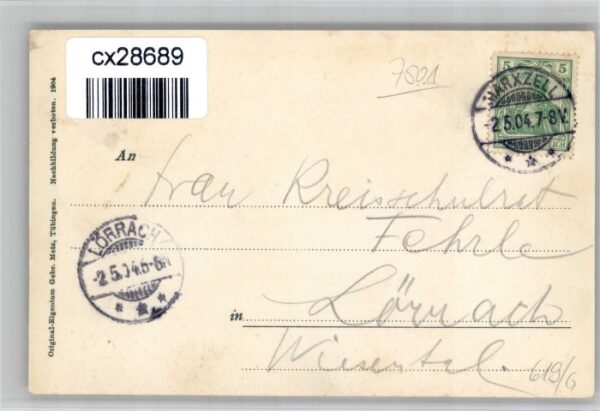 cx28689
7501
5 5
MARXZELL
-2.5.04.7-8V.
An
Frau Kreisschulrat
Fehrle
LÖRRACH
-2.5.04.5-6N
in Lörrach
Wiesental.
619/6
Original-Eigentum Gebr. Metz, Tübingen. Nachbildung verboten. 1904